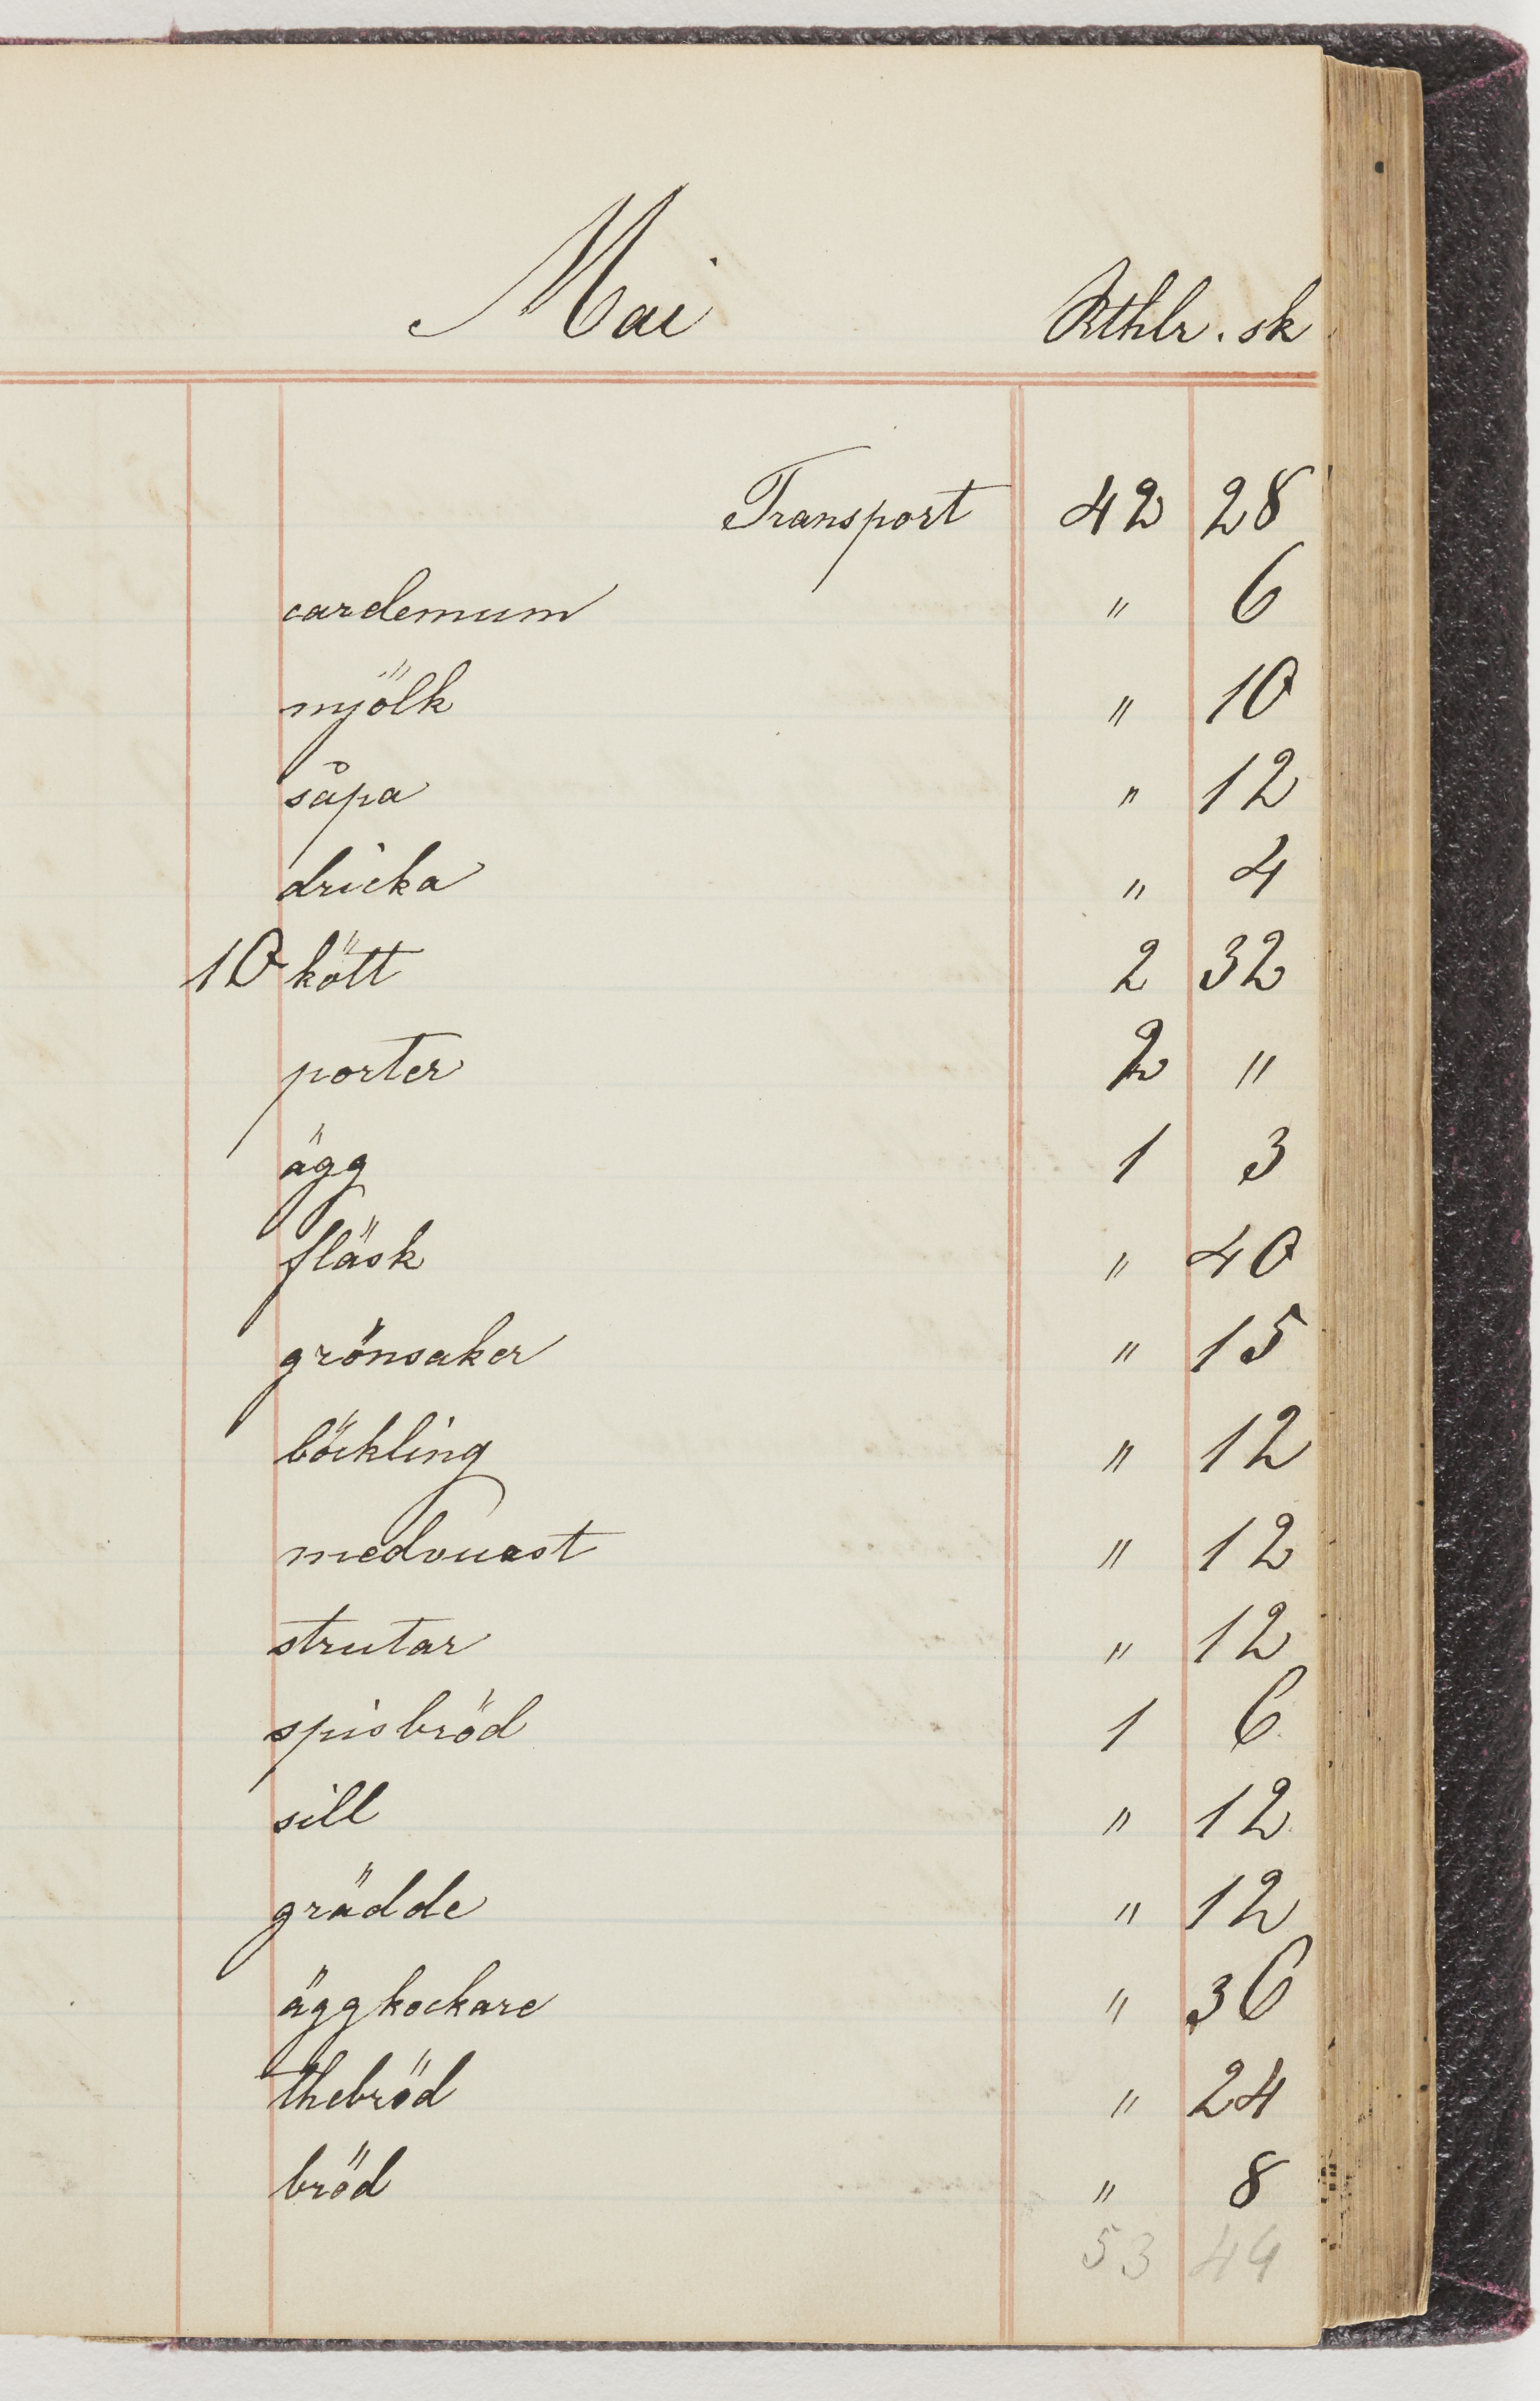 Mai Rthlr. sk
Transport 42 28
cardemum " 6
mjölk " 10
såpa " 12
dricka " 4
10 kött 2 32
porter 2 "
ägg 1 3
fläsk " 40
grönsaker " 15
böckling " 12
medvuast " 12
strutar " 12
spisbröd 1 6
sill " 12
grädde " 12
äggkockare " 36
thebröd " 24
bröd " 8
53 44